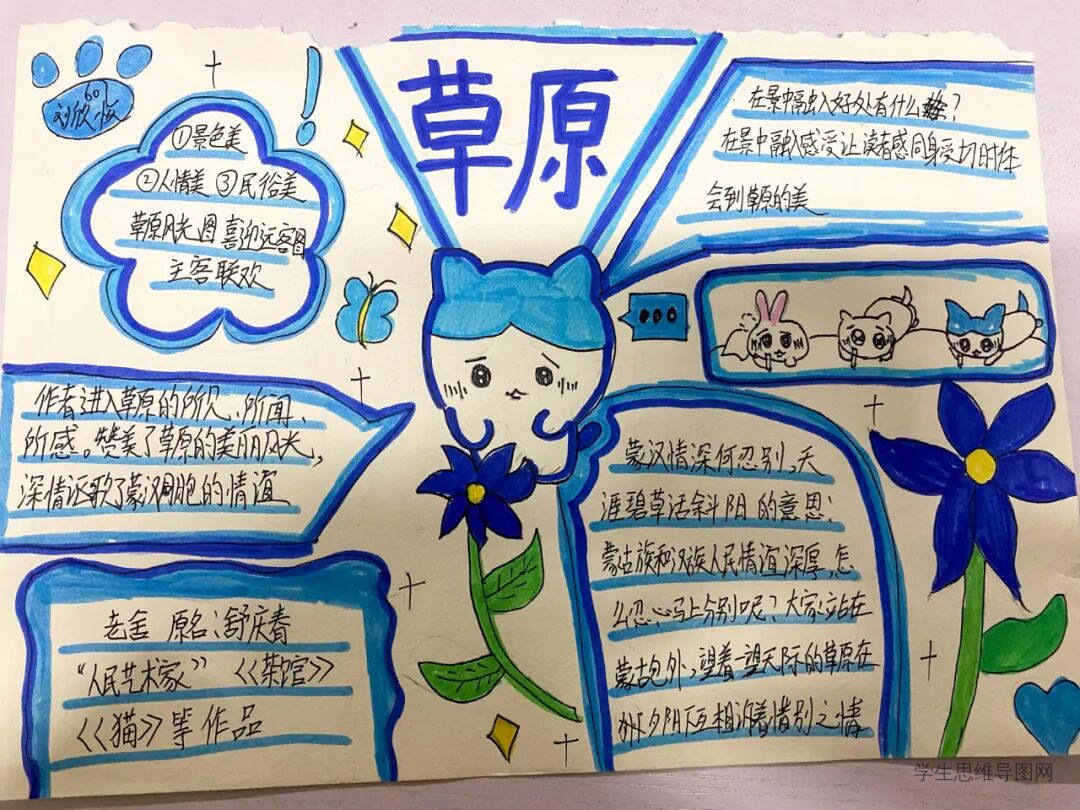 草原
601
刘欣怡
①景色美
②人情美 ③民俗美
草原风光图 喜迎远客图
主客联欢
在景中融入好处有什么?
在景中融入感受让读者感同身受切的体
会到草原的美
作者进入草原的所见、所闻、
所感。赞美了草原的美丽风光,
深情讴歌了蒙汉同胞的情谊
蒙汉情深何忍别,天
涯碧草话斜阳的意思:
蒙古族和汉族人民情谊深厚,怎
么忍心马上分别呢?大家站在
蒙古包外,望着一望无际的草原在
夕阳下互相诉着惜别之情
老舍 原名:舒庆春
“人民艺术家” 《茶馆》
《猫》等作品
学生思维导图网